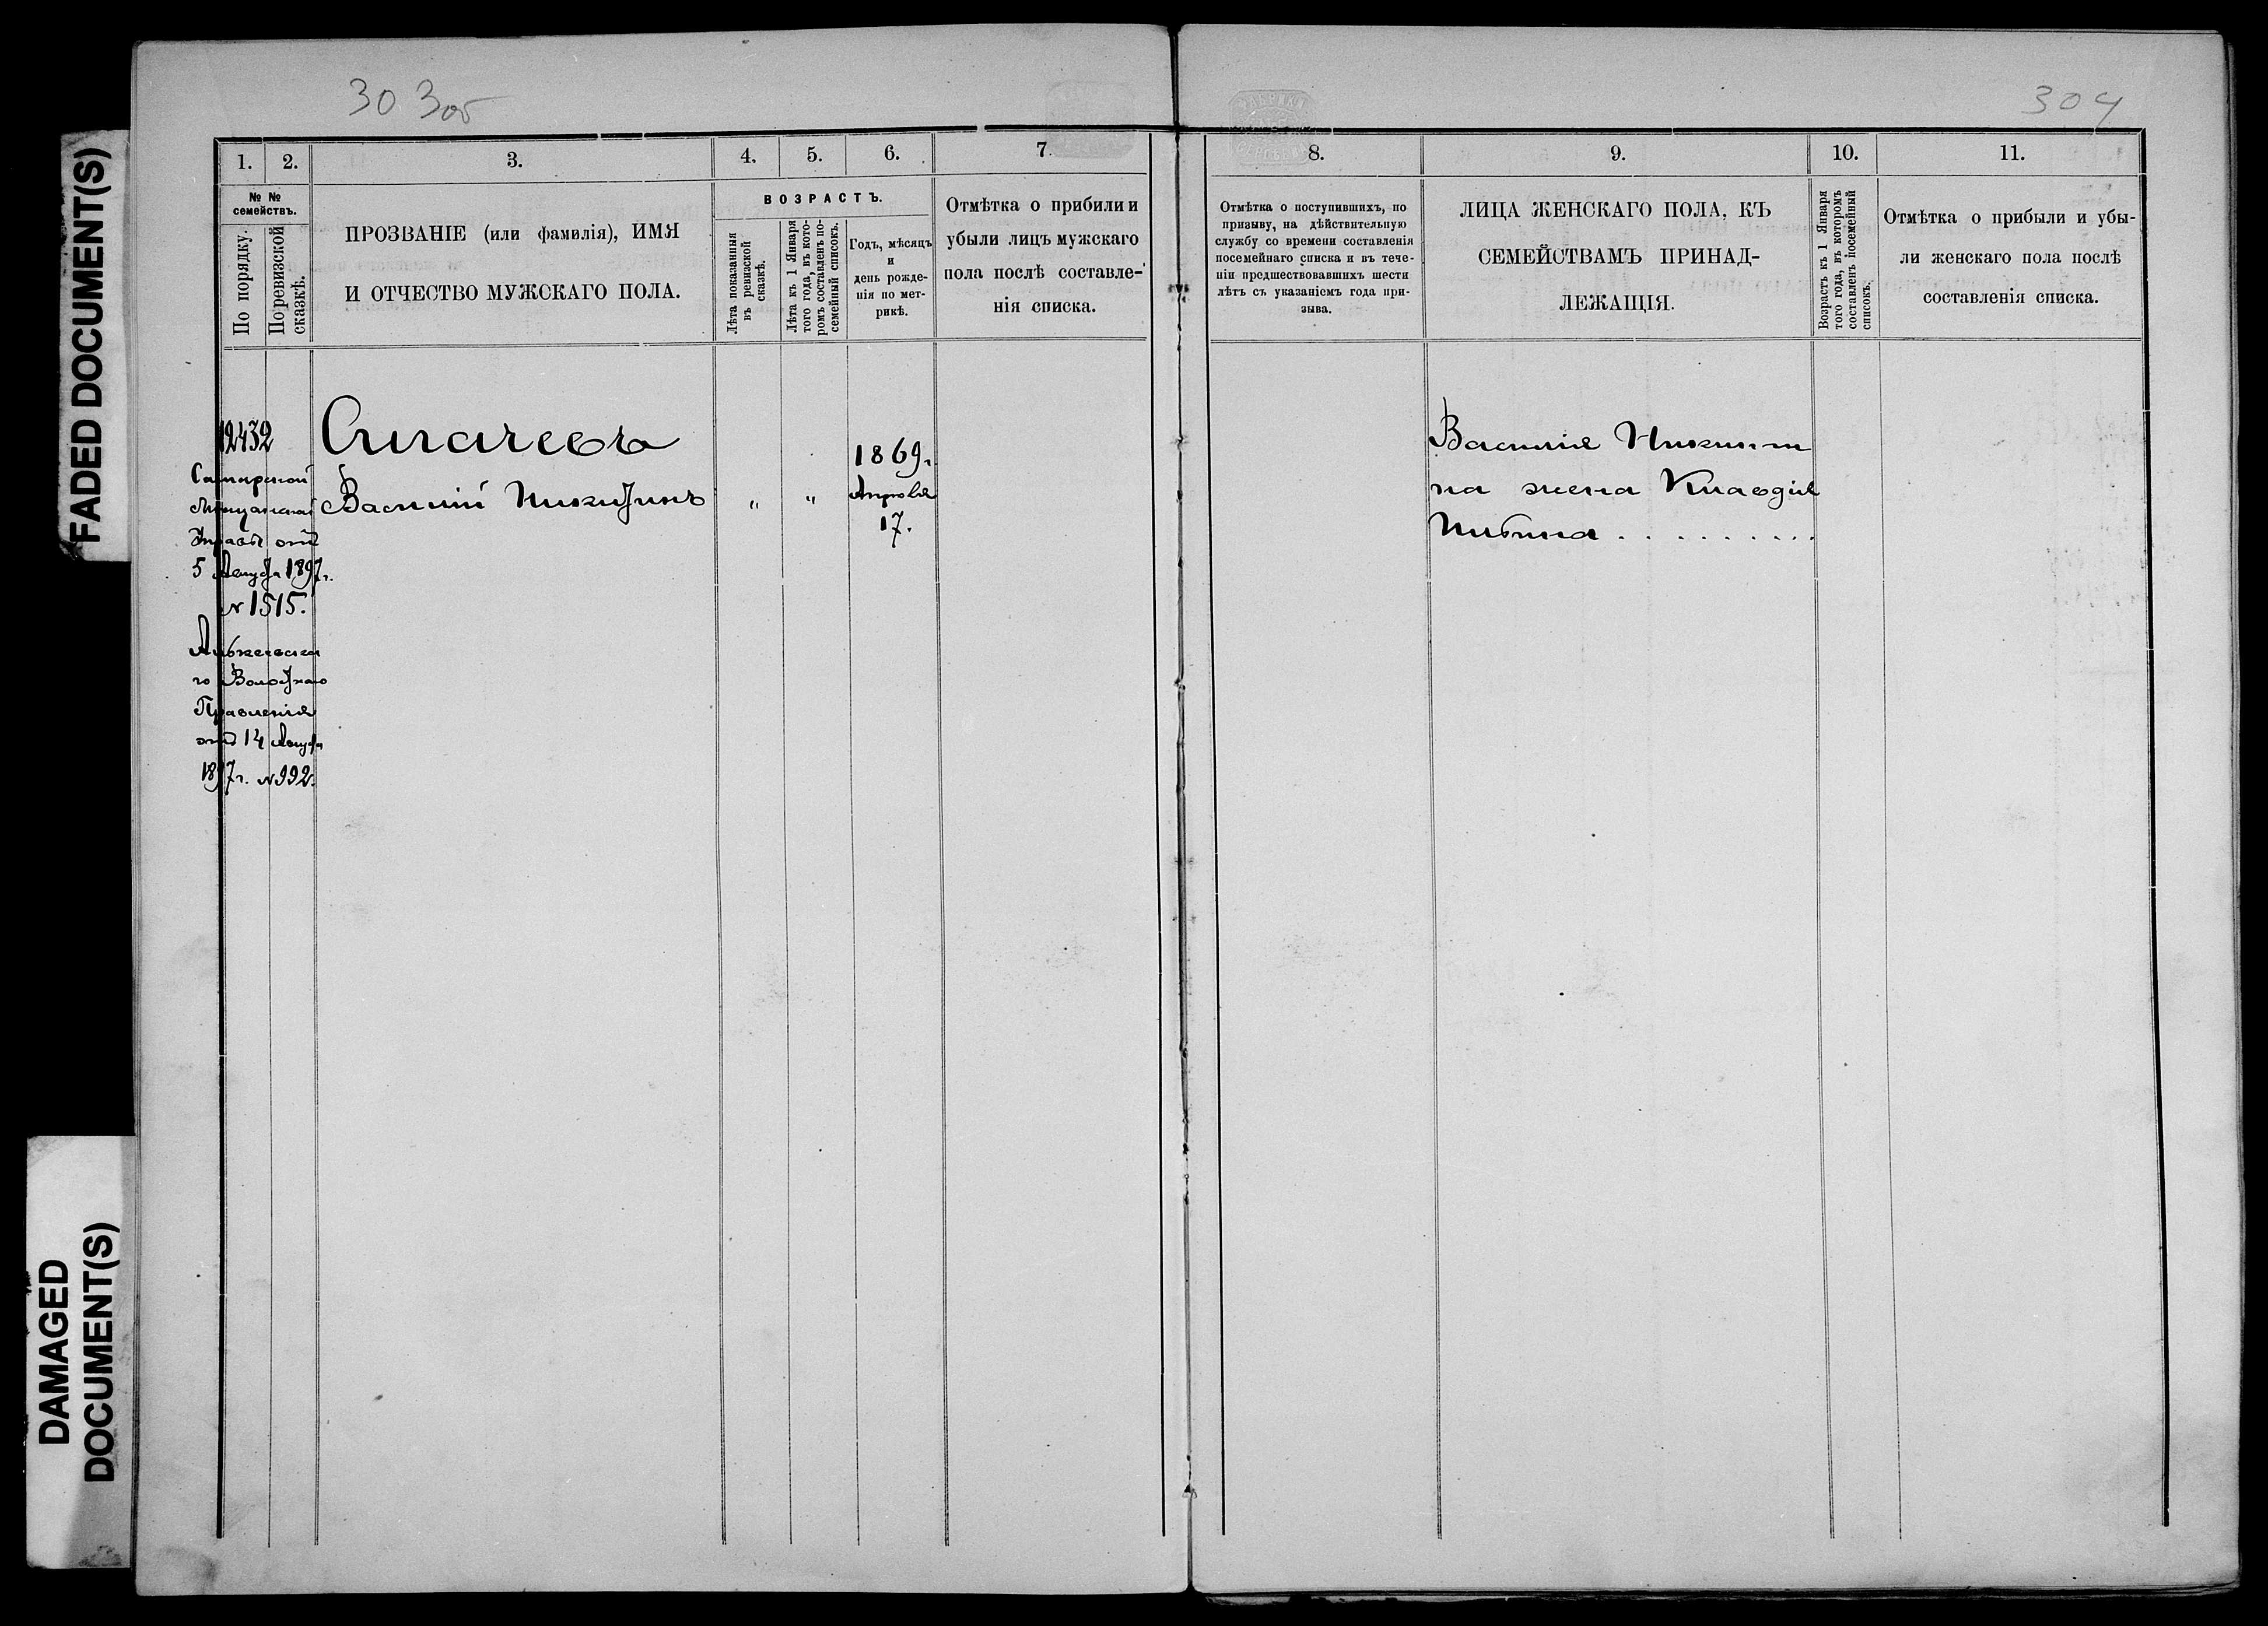 FADED DOCUMENT(S)
DAMAGED
DOCUMENT(S)
303об
1.
2.
3.
4.
5.
6.
7.
№ №
семействъ.
По порядку.
По ревизской
сказкѣ.
ПРОЗВАНІЕ (или фамилія), ИМЯ
И ОТЧЕСТВО МУЖСКАГО ПОЛА.
ВОЗРАСТЪ.
Лѣта показанныя
въ ревизской
сказкѣ.
Лѣта къ 1 Января
того года, въ кото-
ромъ составленъ по-
семейный списокъ.
Годъ, мѣсяцъ
и
день рожде-
нія по мет-
рикѣ.
Отмѣтка о прибыли и
убыли лицъ мужскаго
пола послѣ составле-
нія списка.
12432
Самарской
Мѣщанской
Управы отъ
5 Августа 1897г.
№ 1515.
го Волостнаго
Правленія
отъ 14 Августа
1897г. № 992.
Силачевъ
Василій Никитинъ
"
"
1869г.
Апрѣля
17.
304
8.
9.
10.
11.
Отмѣтка о поступившихъ, по
призыву, на дѣйствительную
службу со времени составленія
посемейнаго списка и въ тече-
ніи предшествовавшихъ шести
лѣтъ съ указаніемъ года при-
зыва.
ЛИЦА ЖЕНСКАГО ПОЛА, КЪ
СЕМЕЙСТВАМЪ ПРИНАД-
ЛЕЖАЩІЯ.
Возрастъ къ 1 Января
того года, въ которомъ
составленъ посемейный
списокъ.
Отмѣтка о прибыли и убы-
ли женскаго пола послѣ
составленія списка.
Василія Никити
на жена Клавдія